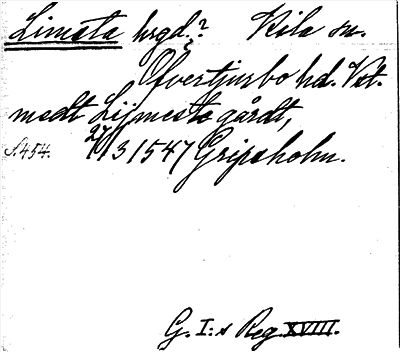 Limsta hrgd.? Kila sn.
Öfvertjurbo hd. Vst.
medt Lijmesta gårdt,
S. 454. 27/3 1547 Gripsholm.
G. I:s Reg XVIII.